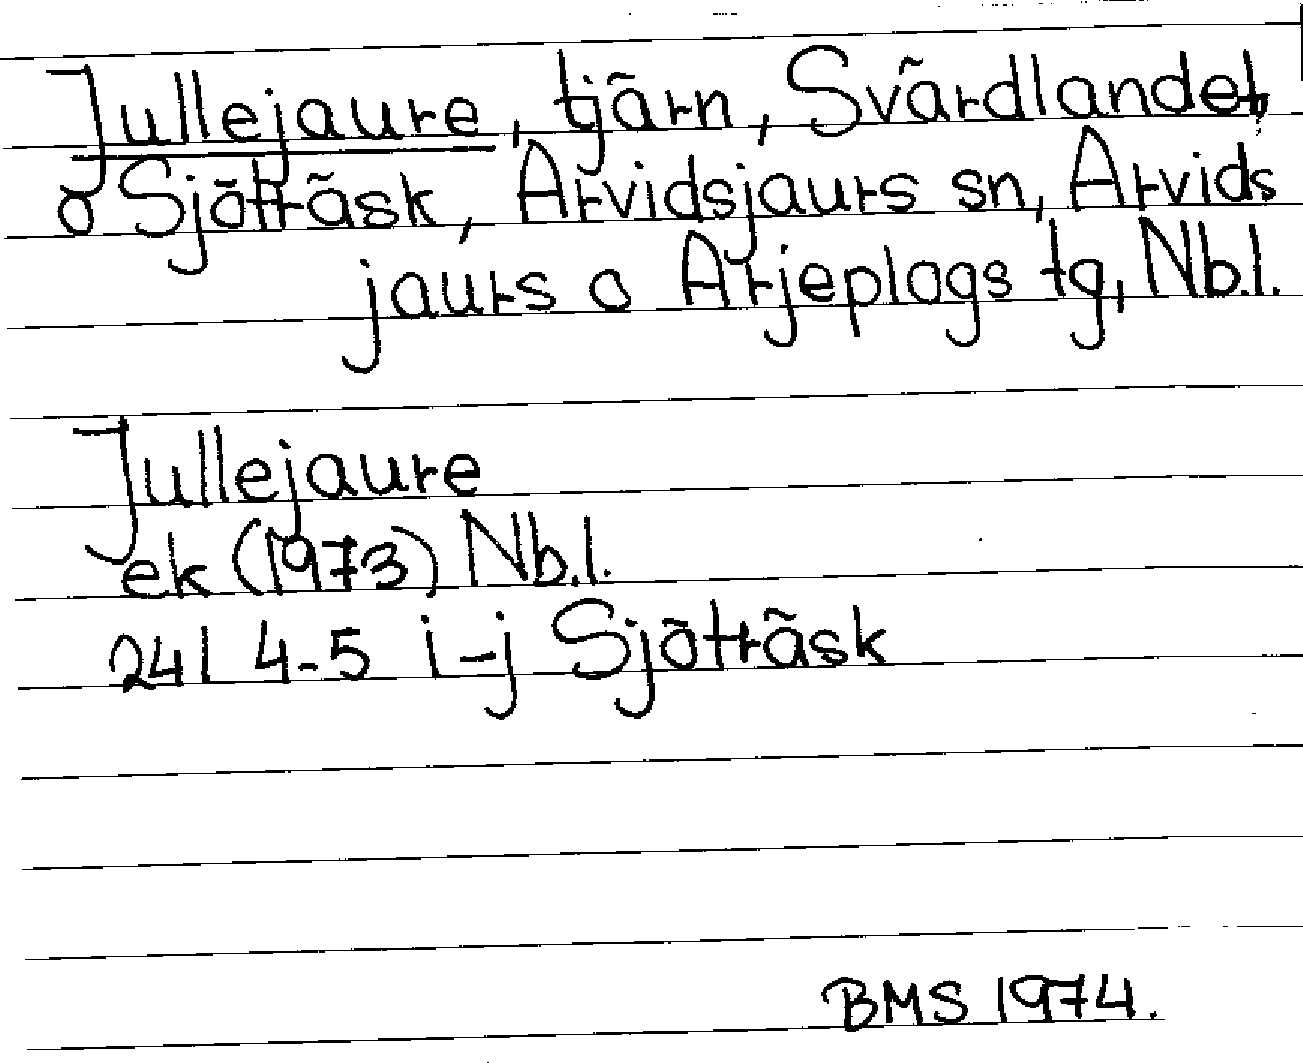 Jullejaure, tjärn, Svärdlandet,
o Sjöträsk, Arvidsjaurs sn, Arvids
jaurs o Arjeplogs tg, Nb.l.
Jullejaure
ek (1973) Nb.l.
24I 4-5 i-j Sjöträsk
BMS 1974.